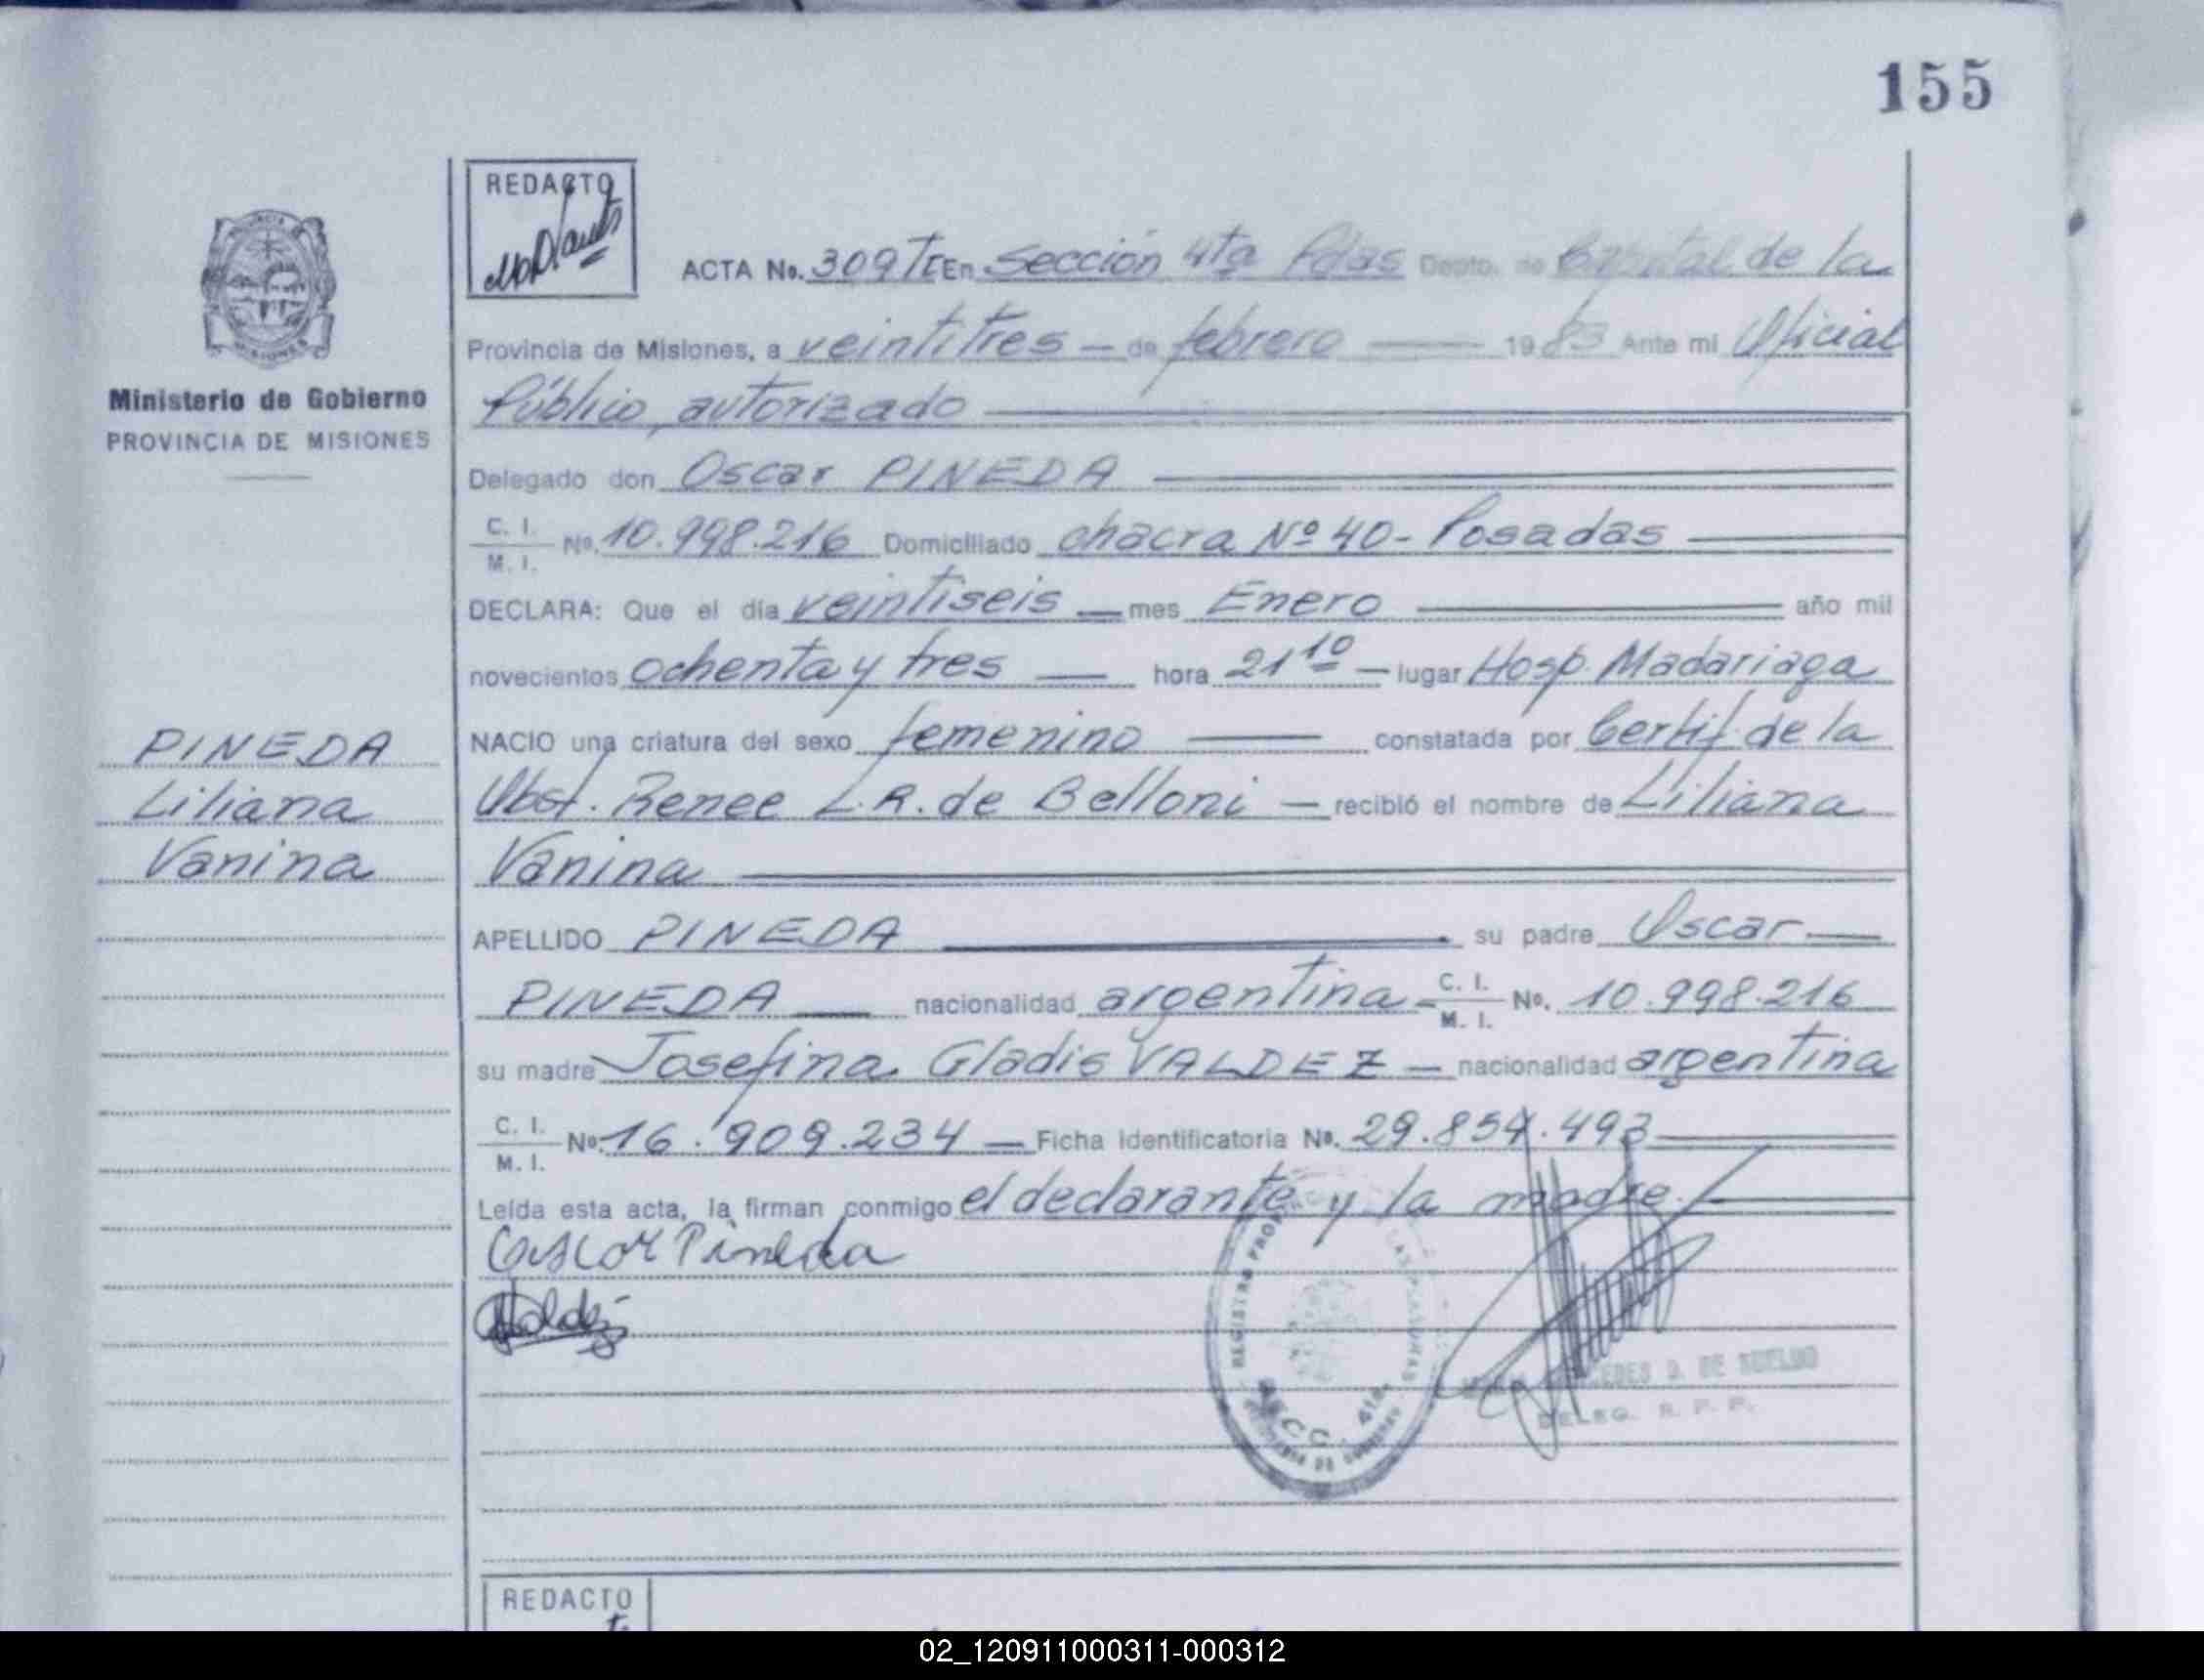 155
REDACTO
ACTA No. 309 TI En Sección 4ta Pdas Depto. de Capital de la
Provincia de Misiones, a veintitres — de febrero — 1983 Ante mi Oficial
Público autorizado
Delegado don Oscar PINEDA
C. I.
M. I. No. 10.998.216 Domiciliado chacra Nº 40 - Posadas
DECLARA: Que el día veintiseis — mes Enero — año mil
novecientos ochenta y tres — hora 21 10 — lugar Hosp. Madariaga
NACIO una criatura del sexo femenino — constatada por Certif de la
Obst. Renee L.R. de Belloni — recibió el nombre de Liliana
Vanina
APELLIDO PINEDA su padre Oscar —
PINEDA — nacionalidad argentina - C. I.
M. I. No. 10.998.216
su madre Josefina Gladis VALDEZ — nacionalidad argentina
C. I.
M. I. No. 16.909.234 — Ficha Identificatoria No. 29.854.493
Leída esta acta, la firman conmigo el declarante y la madre.
Oscar Pineda
Valdez
SECC. 4ta.
DE SUELDO
DELEG. R. P. P.
REDACTO
MISIONES
Ministerio de Gobierno
PROVINCIA DE MISIONES
PINEDA
Liliana
Vanina
02_120911000311-000312